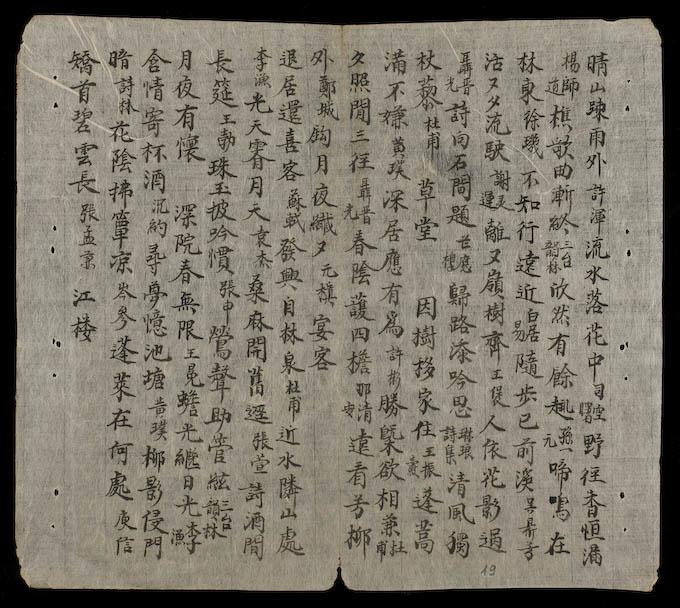 晴山踈雨外許渾流水落花中司空曙野徑杳恒滿
楊師道樵歌曲漸終三台韻林欣然有餘趣孫一元啼鳥在
林東徐璣不知行遠近白居易隨步已前溪吴鼎芳
沽又夕流駛謝灵運離又嶺樹齊王偁人依花影過
聶晋光詩向石間題世應樓歸路添吟思琳琅詩集清風獨
杖藜杜甫 草堂 因樹移家住王振蓬蒿
滿不嫌黄璞深居應有為許彬勝槩欲相兼杜甫
夕照閒三徑聶晋光春陰護四檐那清遠看芳柳
外鄭城鈎月夜纖又元旗宴客
退居還喜客蘇軾發興自林泉杜甫近水隣山處
李漁光天霽月天袁杰桑麻開舊逕張萱詩酒間
長筵王勃珠玉披吟慣張申鶯聲助管絃三台韻林
月夜有懷 深院春無限王冕蟾光繼日光李漁
含情寄杯酒沉約尋夢憶池塘黄璞柳影侵門
暗詩林花陰拂簟凉岑参蓬萊在何處庾信
矯首碧雲長張孟京 江楼
19